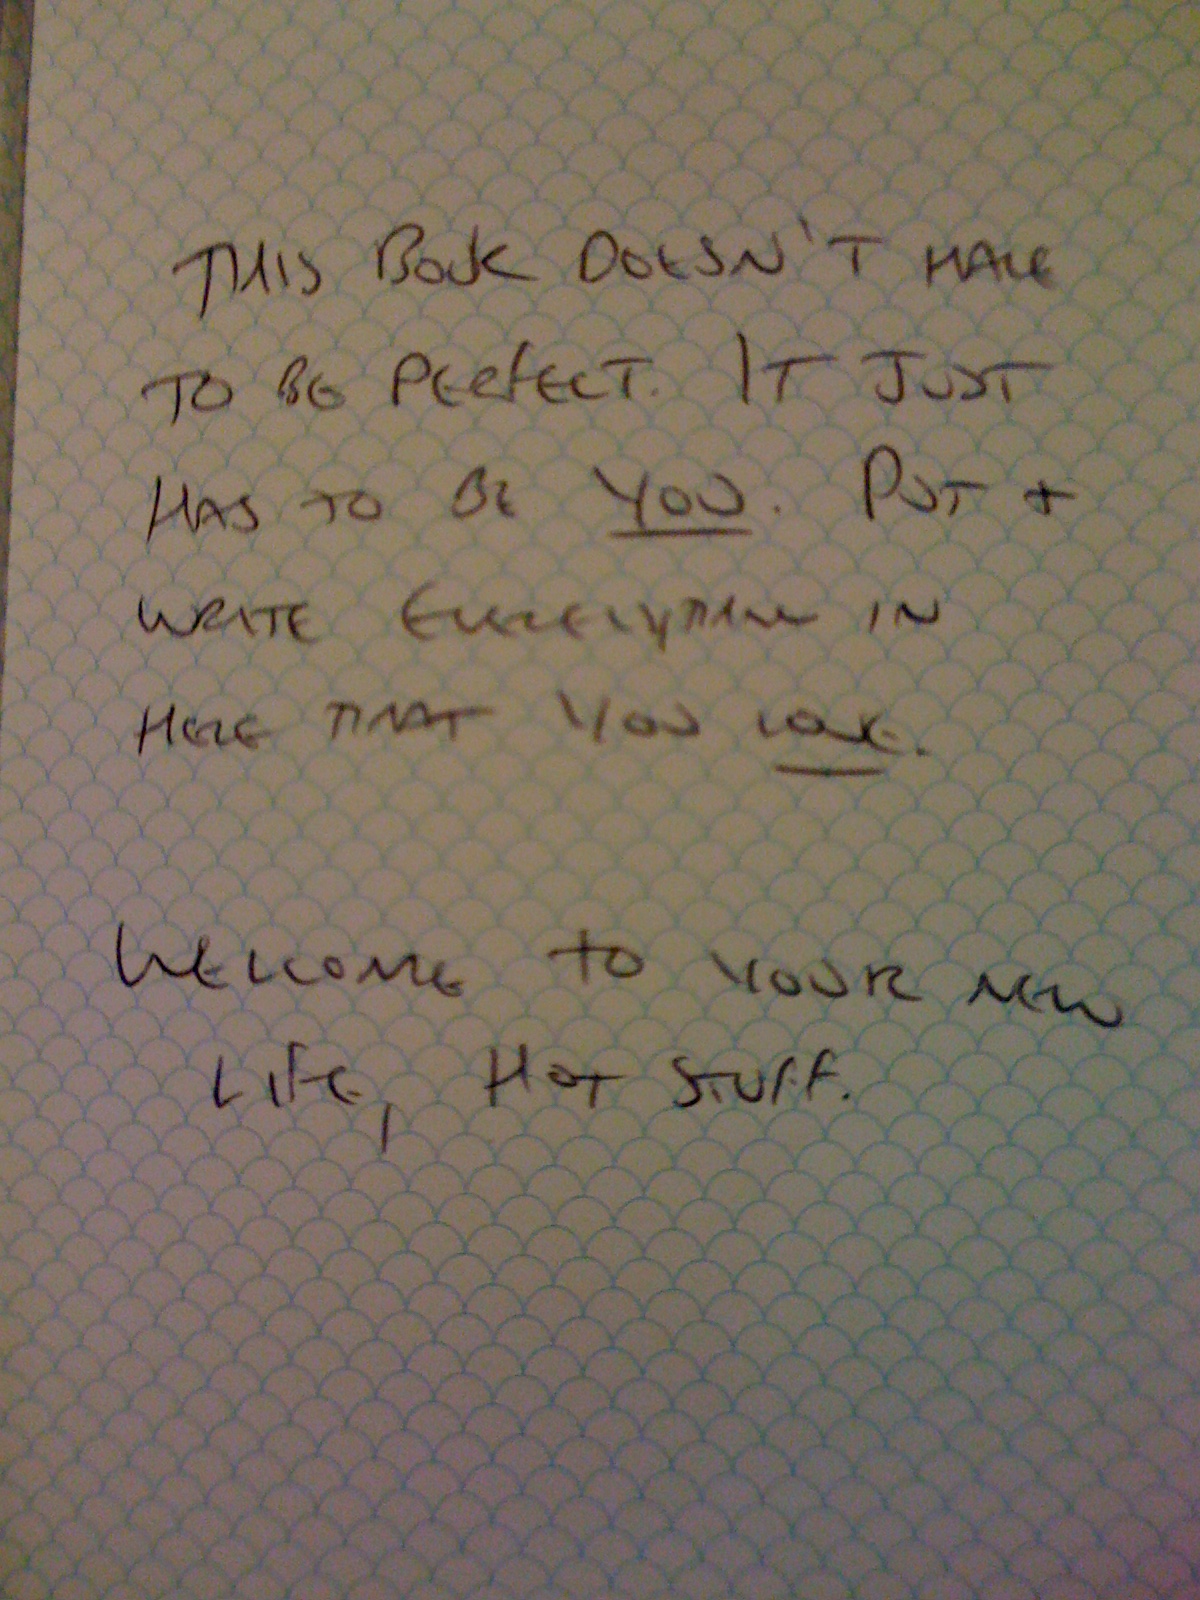 THIS BOOK DOESN'T HAVE
TO BE PERFECT. IT JUST
HAS TO BE YOU. PUT +
WRITE EVERYTHING IN
HERE THAT YOU LOVE.
WELCOME TO YOUR NEW
LIFE, HOT STUFF.